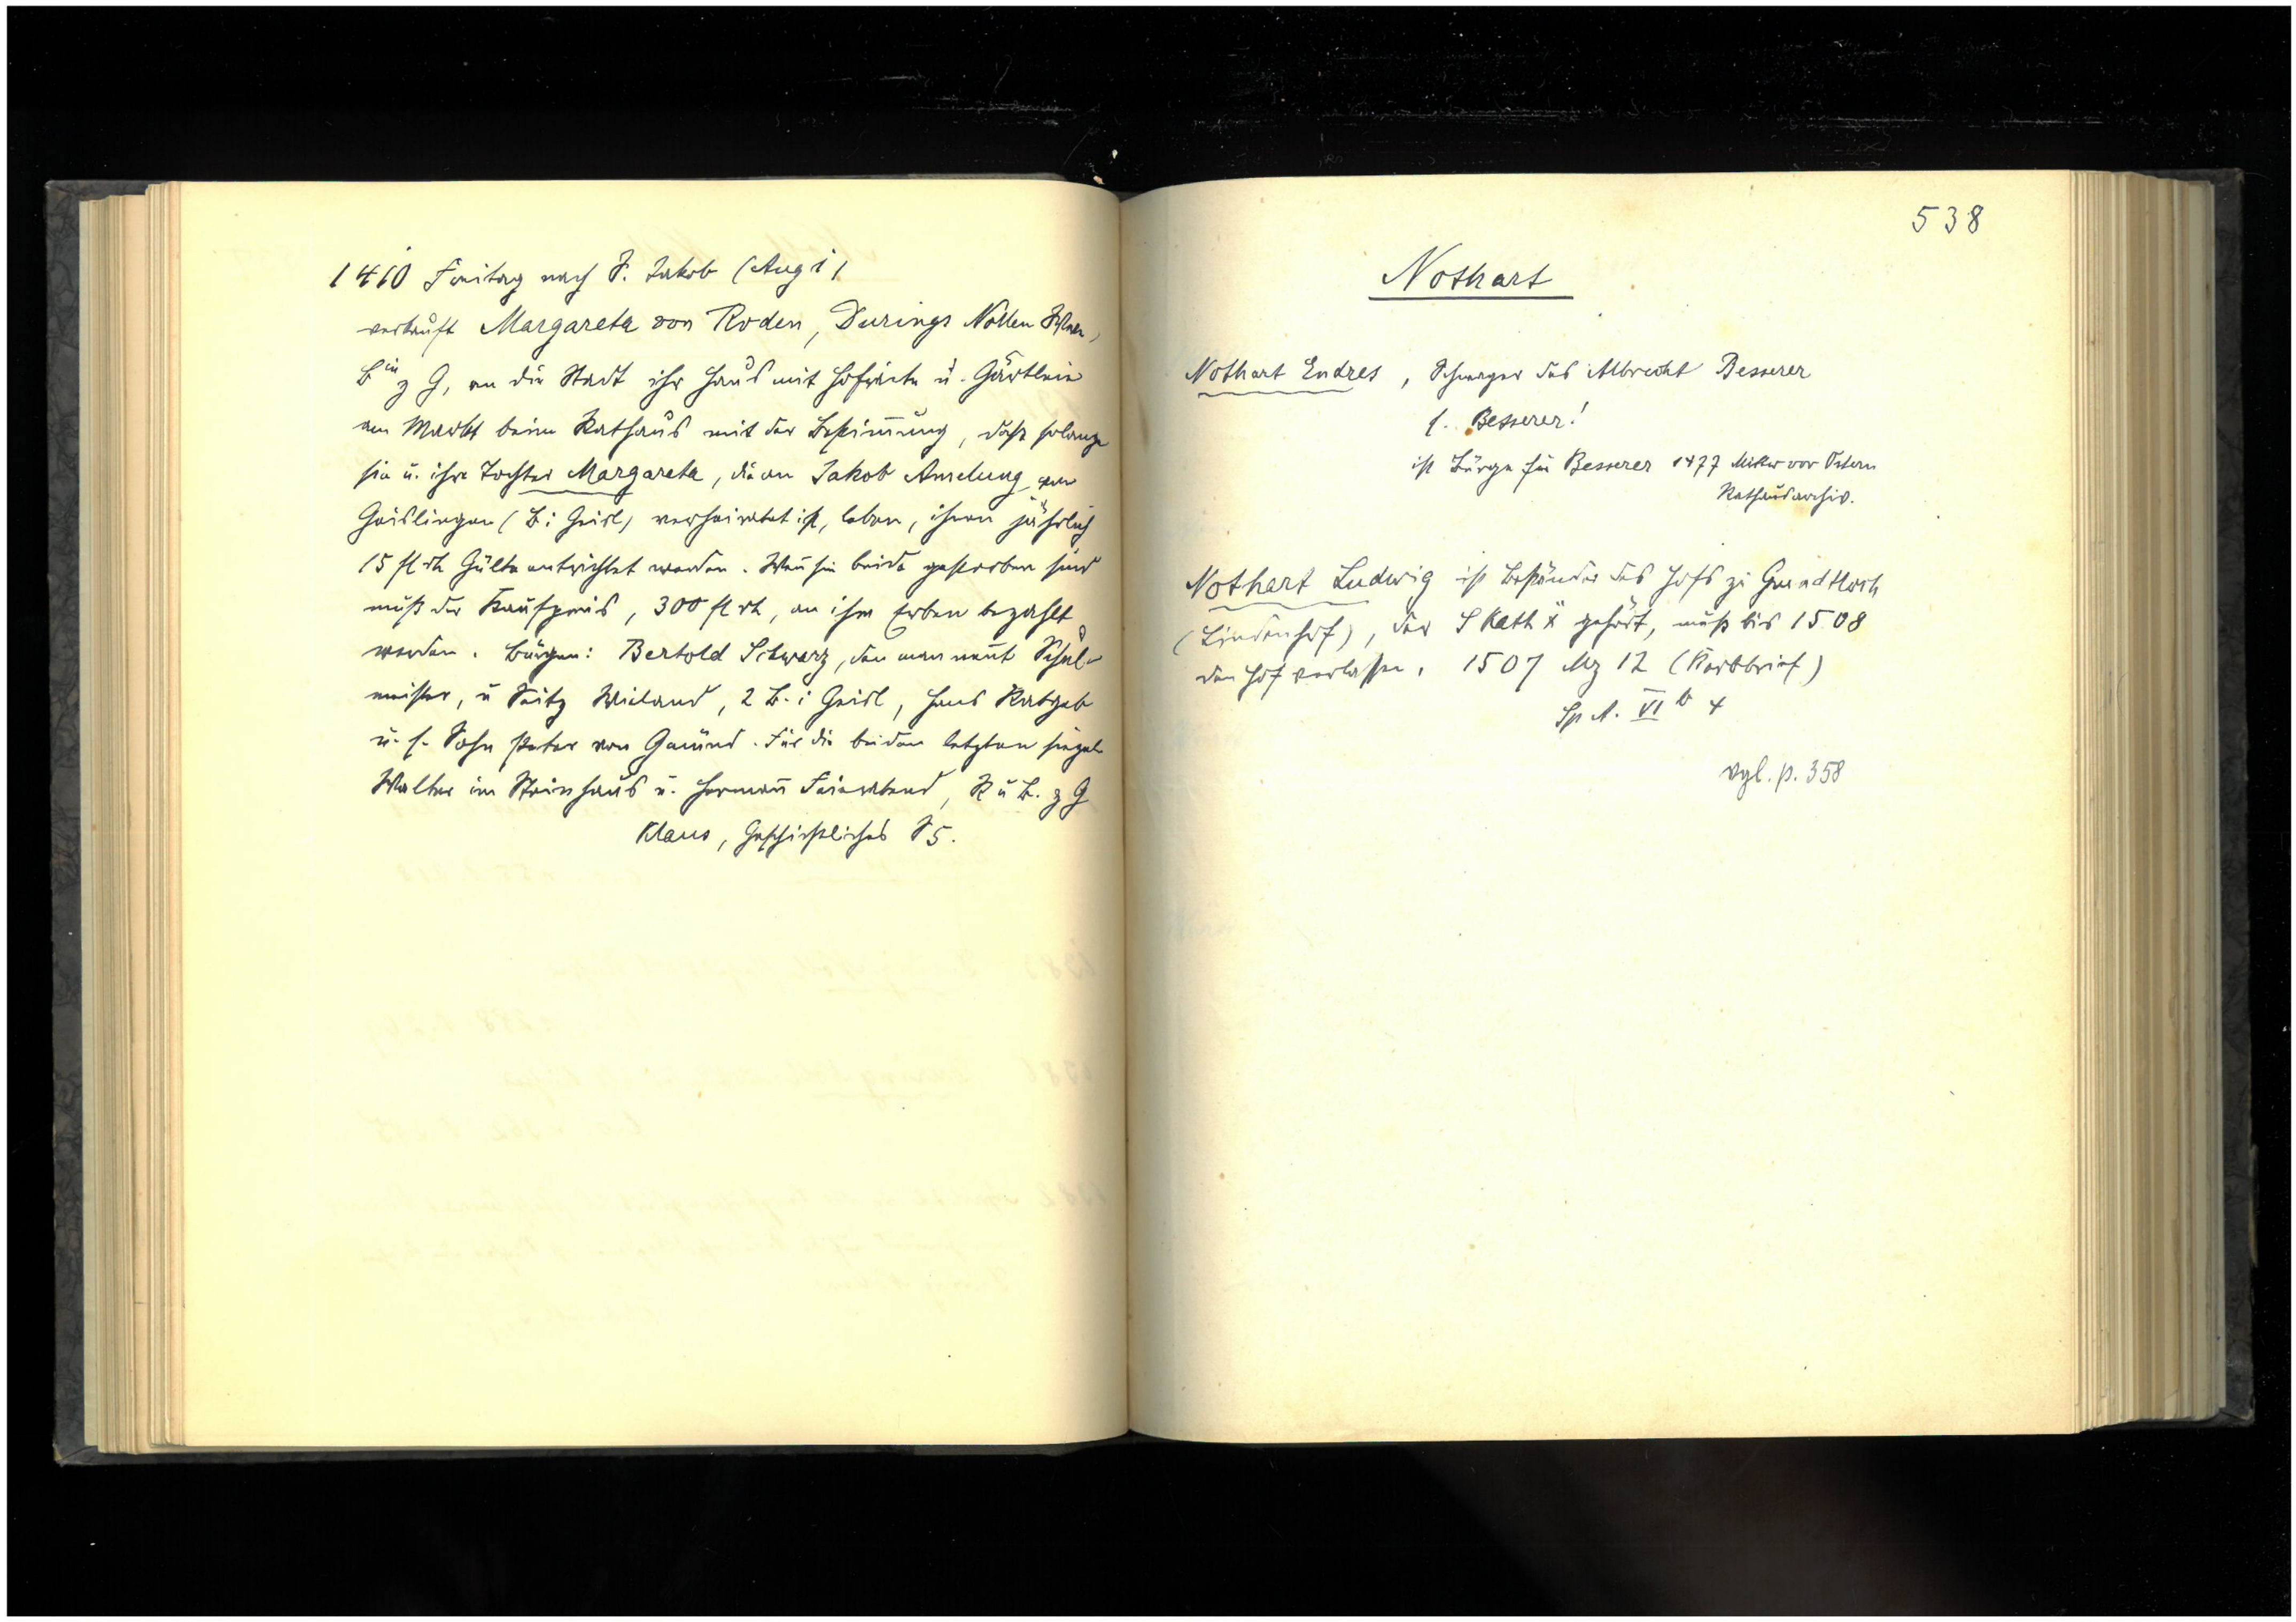 1410 Freitag nach S. Jakob (Aug 1)
verkauft Margareta von Roden, Durings Nollen Wwe,
Bin z G, an die Stadt ihr Haus mit Hofraite u. Gärtlein
am Markt beim Rathaus mit der Bestimung, dass solange
sie u. ihre Tochter Margareta, die an Jakob Amelung von
Geislingen (B i Geisl) verheiratet ist, leben, ihnen jährlich
15 fl rh Gülte entrichtet werden. Wen sie beide gestorben sind
muß der Kaufpreis, 300 fl rh, an ihre Erben bezahlt
werden. Bürgen: Bertold Schwarz, den man nent Schul-
meister, u Seitz Wieland, 2 B. i Geisl, Hans Ratgeb
u. s. Sohn Peter von Gmünd. Für die beiden letzten siegeln
Walter im Steinhaus u. Herman Feierabend, R u B. z G
Klaus, Geschichtliches S 5.
538
Nothart
Nothart Endres, Schwager des Albrecht Besserer
s. Besserer!
ist Bürge für Besserer 1477 Mitw vor Ostern
Rathausarchiv.
Nothart Ludwig ist Beständer des Hofs zu
(Lindenhof), der S Kath gehört, muß bis 1508
den Hof verlassen. 1507 Mz 12 (Kerbbrief)
Sp A. VI b 4
vgl. p. 358